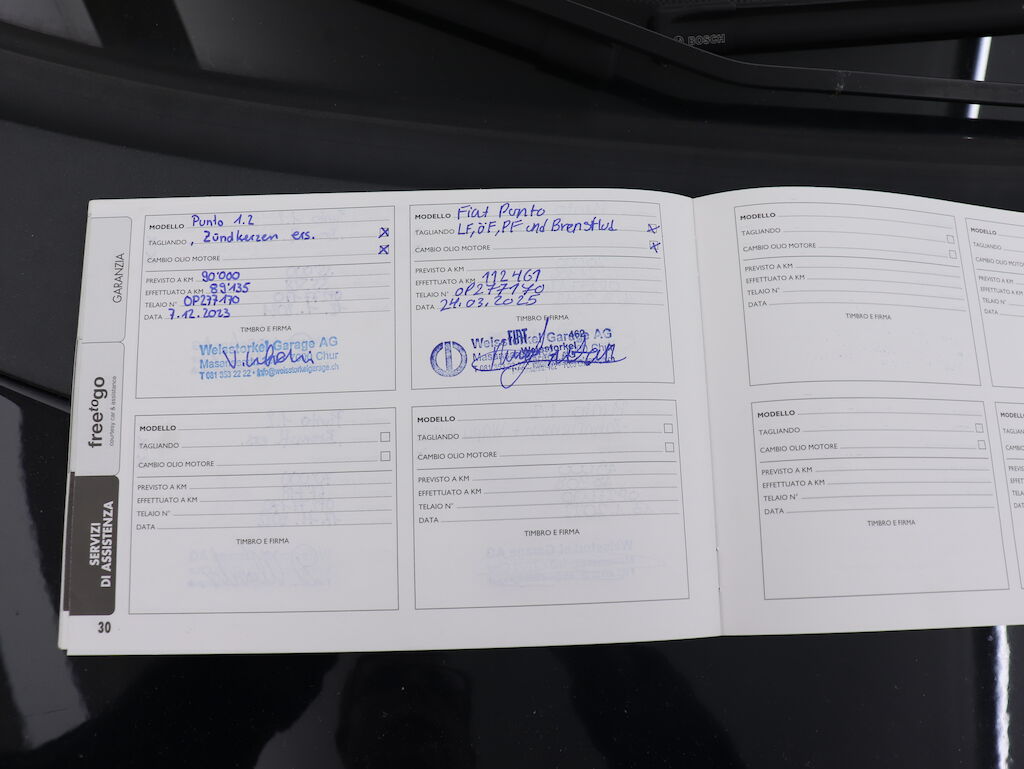 BOSCH
GARANZIA
freetogo
courtesy car & assistance
SERVIZI
DI ASSISTENZA
30
MODELLO Punto 1.2
TAGLIANDO , Zündkerzen ers. x
CAMBIO OLIO MOTORE x
PREVISTO A KM 90'000
EFFETTUATO A KM 89'135
TELAIO N° OP277170
DATA 7.12.2023
TIMBRO E FIRMA
Weisstorkel Garage AG
Chur
T 081 353 22 22 • info@weisstorkelgarage.ch
MODELLO Fiat Punto
TAGLIANDO LF, ÖF, PF und Bremsflus x
CAMBIO OLIO MOTORE x
PREVISTO A KM
EFFETTUATO A KM 112461
TELAIO N° OP277170
DATA 24.03.2025
TIMBRO E FIRMA
FIAT
Garage AG
Chur
MODELLO
TAGLIANDO
CAMBIO OLIO MOTORE
PREVISTO A KM
EFFETTUATO A KM
TELAIO N°
DATA
TIMBRO E FIRMA
MODELLO
TAGLIANDO
CAMBIO OLIO MOTORE
PREVISTO A KM
EFFETTUATO A KM
TELAIO N°
DATA
TIMBRO E FIRMA
MODELLO
TAGLIANDO
CAMBIO OLIO MOTORE
PREVISTO A KM
EFFETTUATO A KM
TELAIO N°
DATA
TIMBRO E FIRMA
MODELLO
TAGLIANDO
CAMBIO OLIO MOTORE
PREVISTO A KM
EFFETTUATO A KM
TELAIO N°
DATA
TIMBRO E FIRMA
MODELLO
TAGLIANDO
CAMBIO OLIO
PREVISTO A KM
EFFETTUATO A
TELAIO N°
DATA